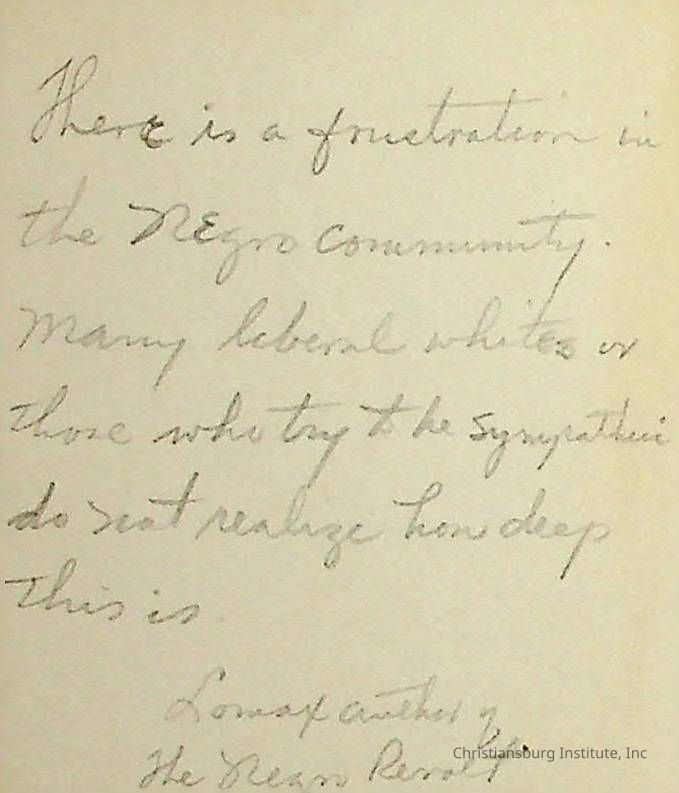 There is a frustration in
the Negro Community.
Many liberal whites or
those who try to be Sympathetic
do not realize how deep
this is.
Lomax author of
The Negro Revolt.
Christiansburg Institute, Inc